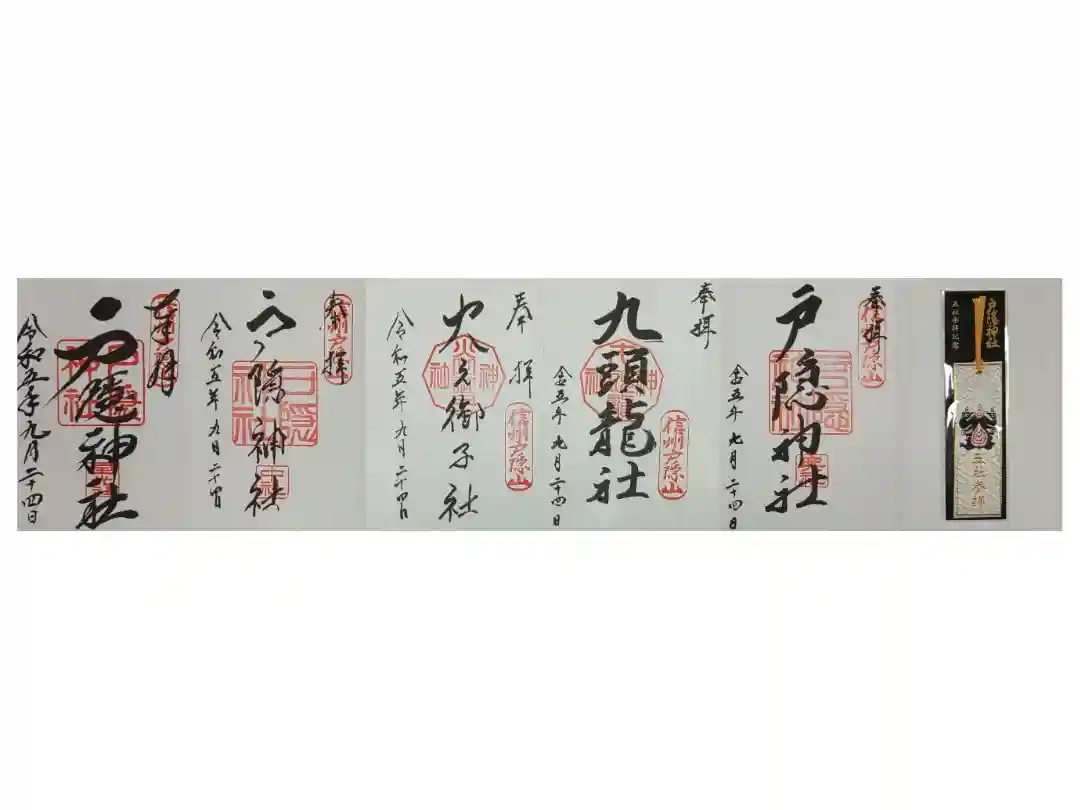 奉拝
信州戸隠山
戸隠神社
令和五年九月二十四日
奉拝
信州戸隠山
戸隠神社
令和五年九月二十四日
奉拝
信州戸隠山
火之御子社
令和五年九月二十四日
奉拝
信州戸隠山
九頭龍社
令和五年九月二十四日
奉拝
信州戸隠山
戸隠神社
令和五年九月二十四日
戸隠神社
五社参拝記念
五社参拝